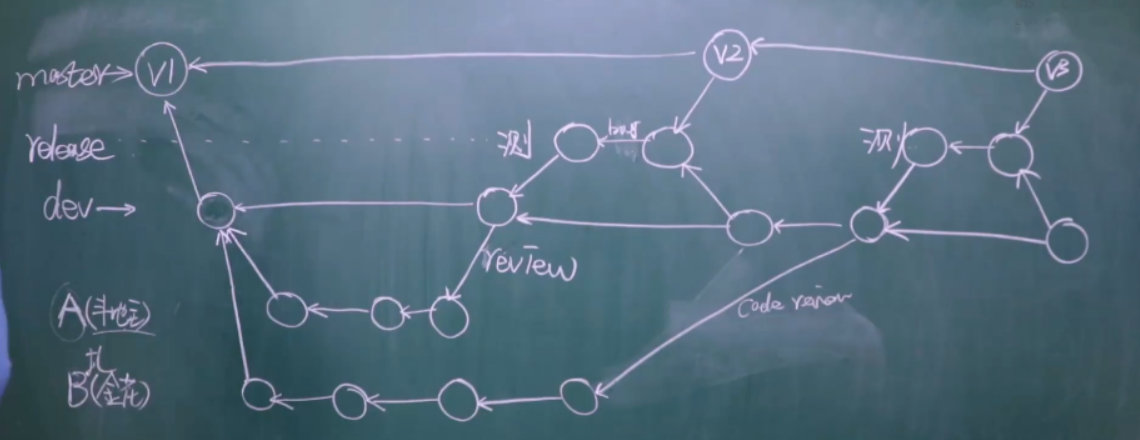 master
V1
V2
V3
release
测
bug
测
dev
review
A(斗地主)
code review
B(扎金花)